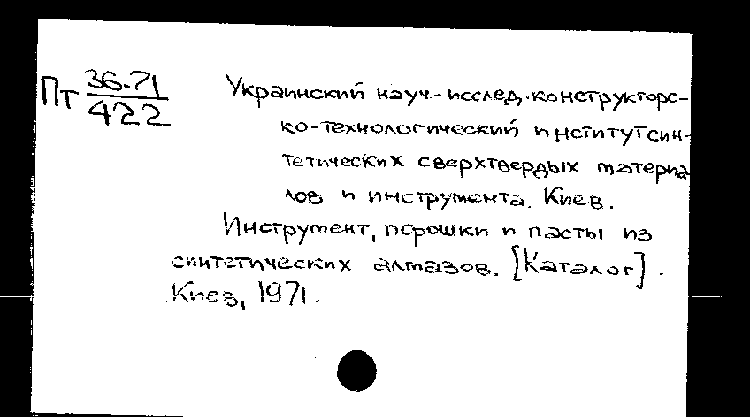 Пт 36-71/422
Украинский науч.-исслед. конструкторс-
ко-технологический институт син-
тетических сверхтвердых материа
лов и инструмента. Киев.
Инструмент, порошки и пасты из
синтетических алмазов. [Каталог].
Киев, 1971.